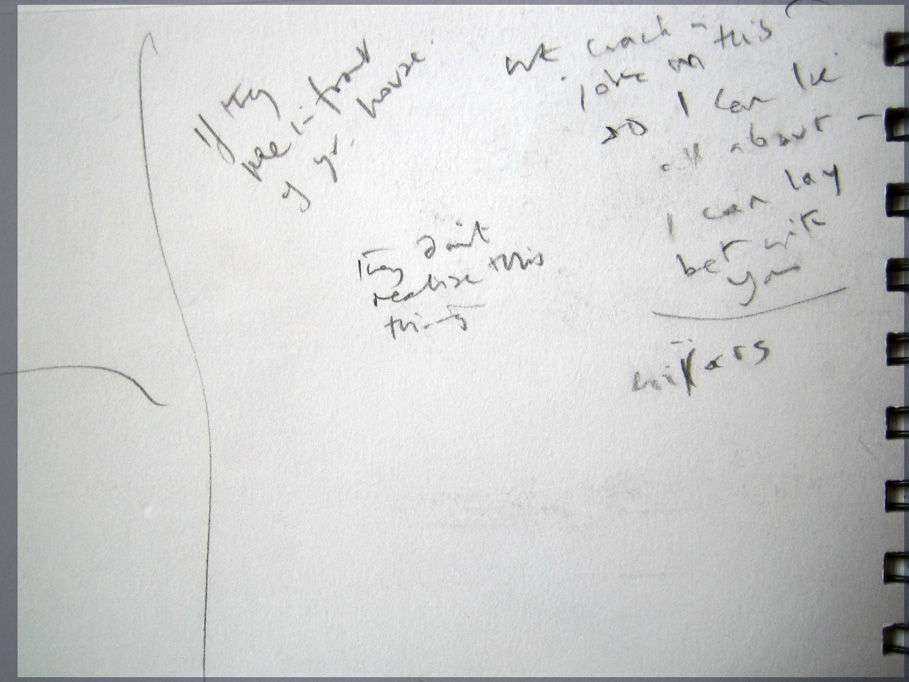 If they
pee in front
of yr. house.
we crack a
joke on this
so I can lie
all about —
I can lay
bet with
you
they don't
realise this
things